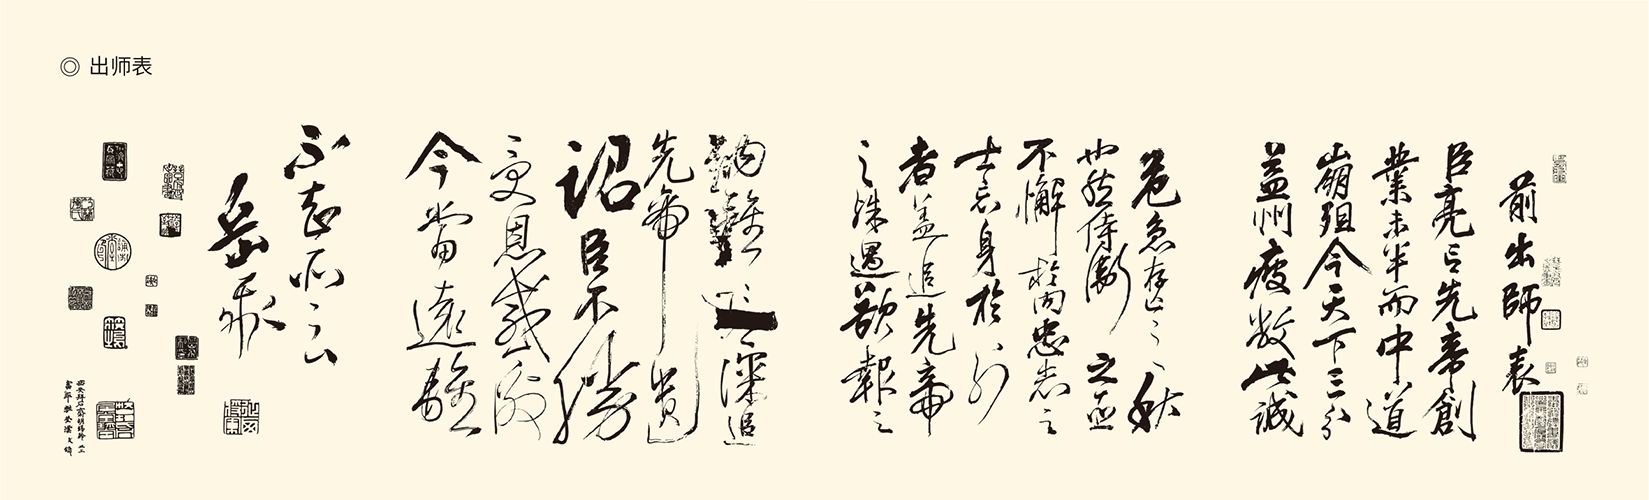 ◎ 出师表
前出師表
臣亮言先帝創
業未半而中道
崩殂今天下三分
益州疲敝此誠
危急存亡之秋
也然侍衛之臣
不懈於内忠志之
士忘身於外
者盖追先帝
之殊遇欲報之
納雅言深追
先帝遺
詔臣不勝
受恩感激
今當遠離
不知所云
岳飛